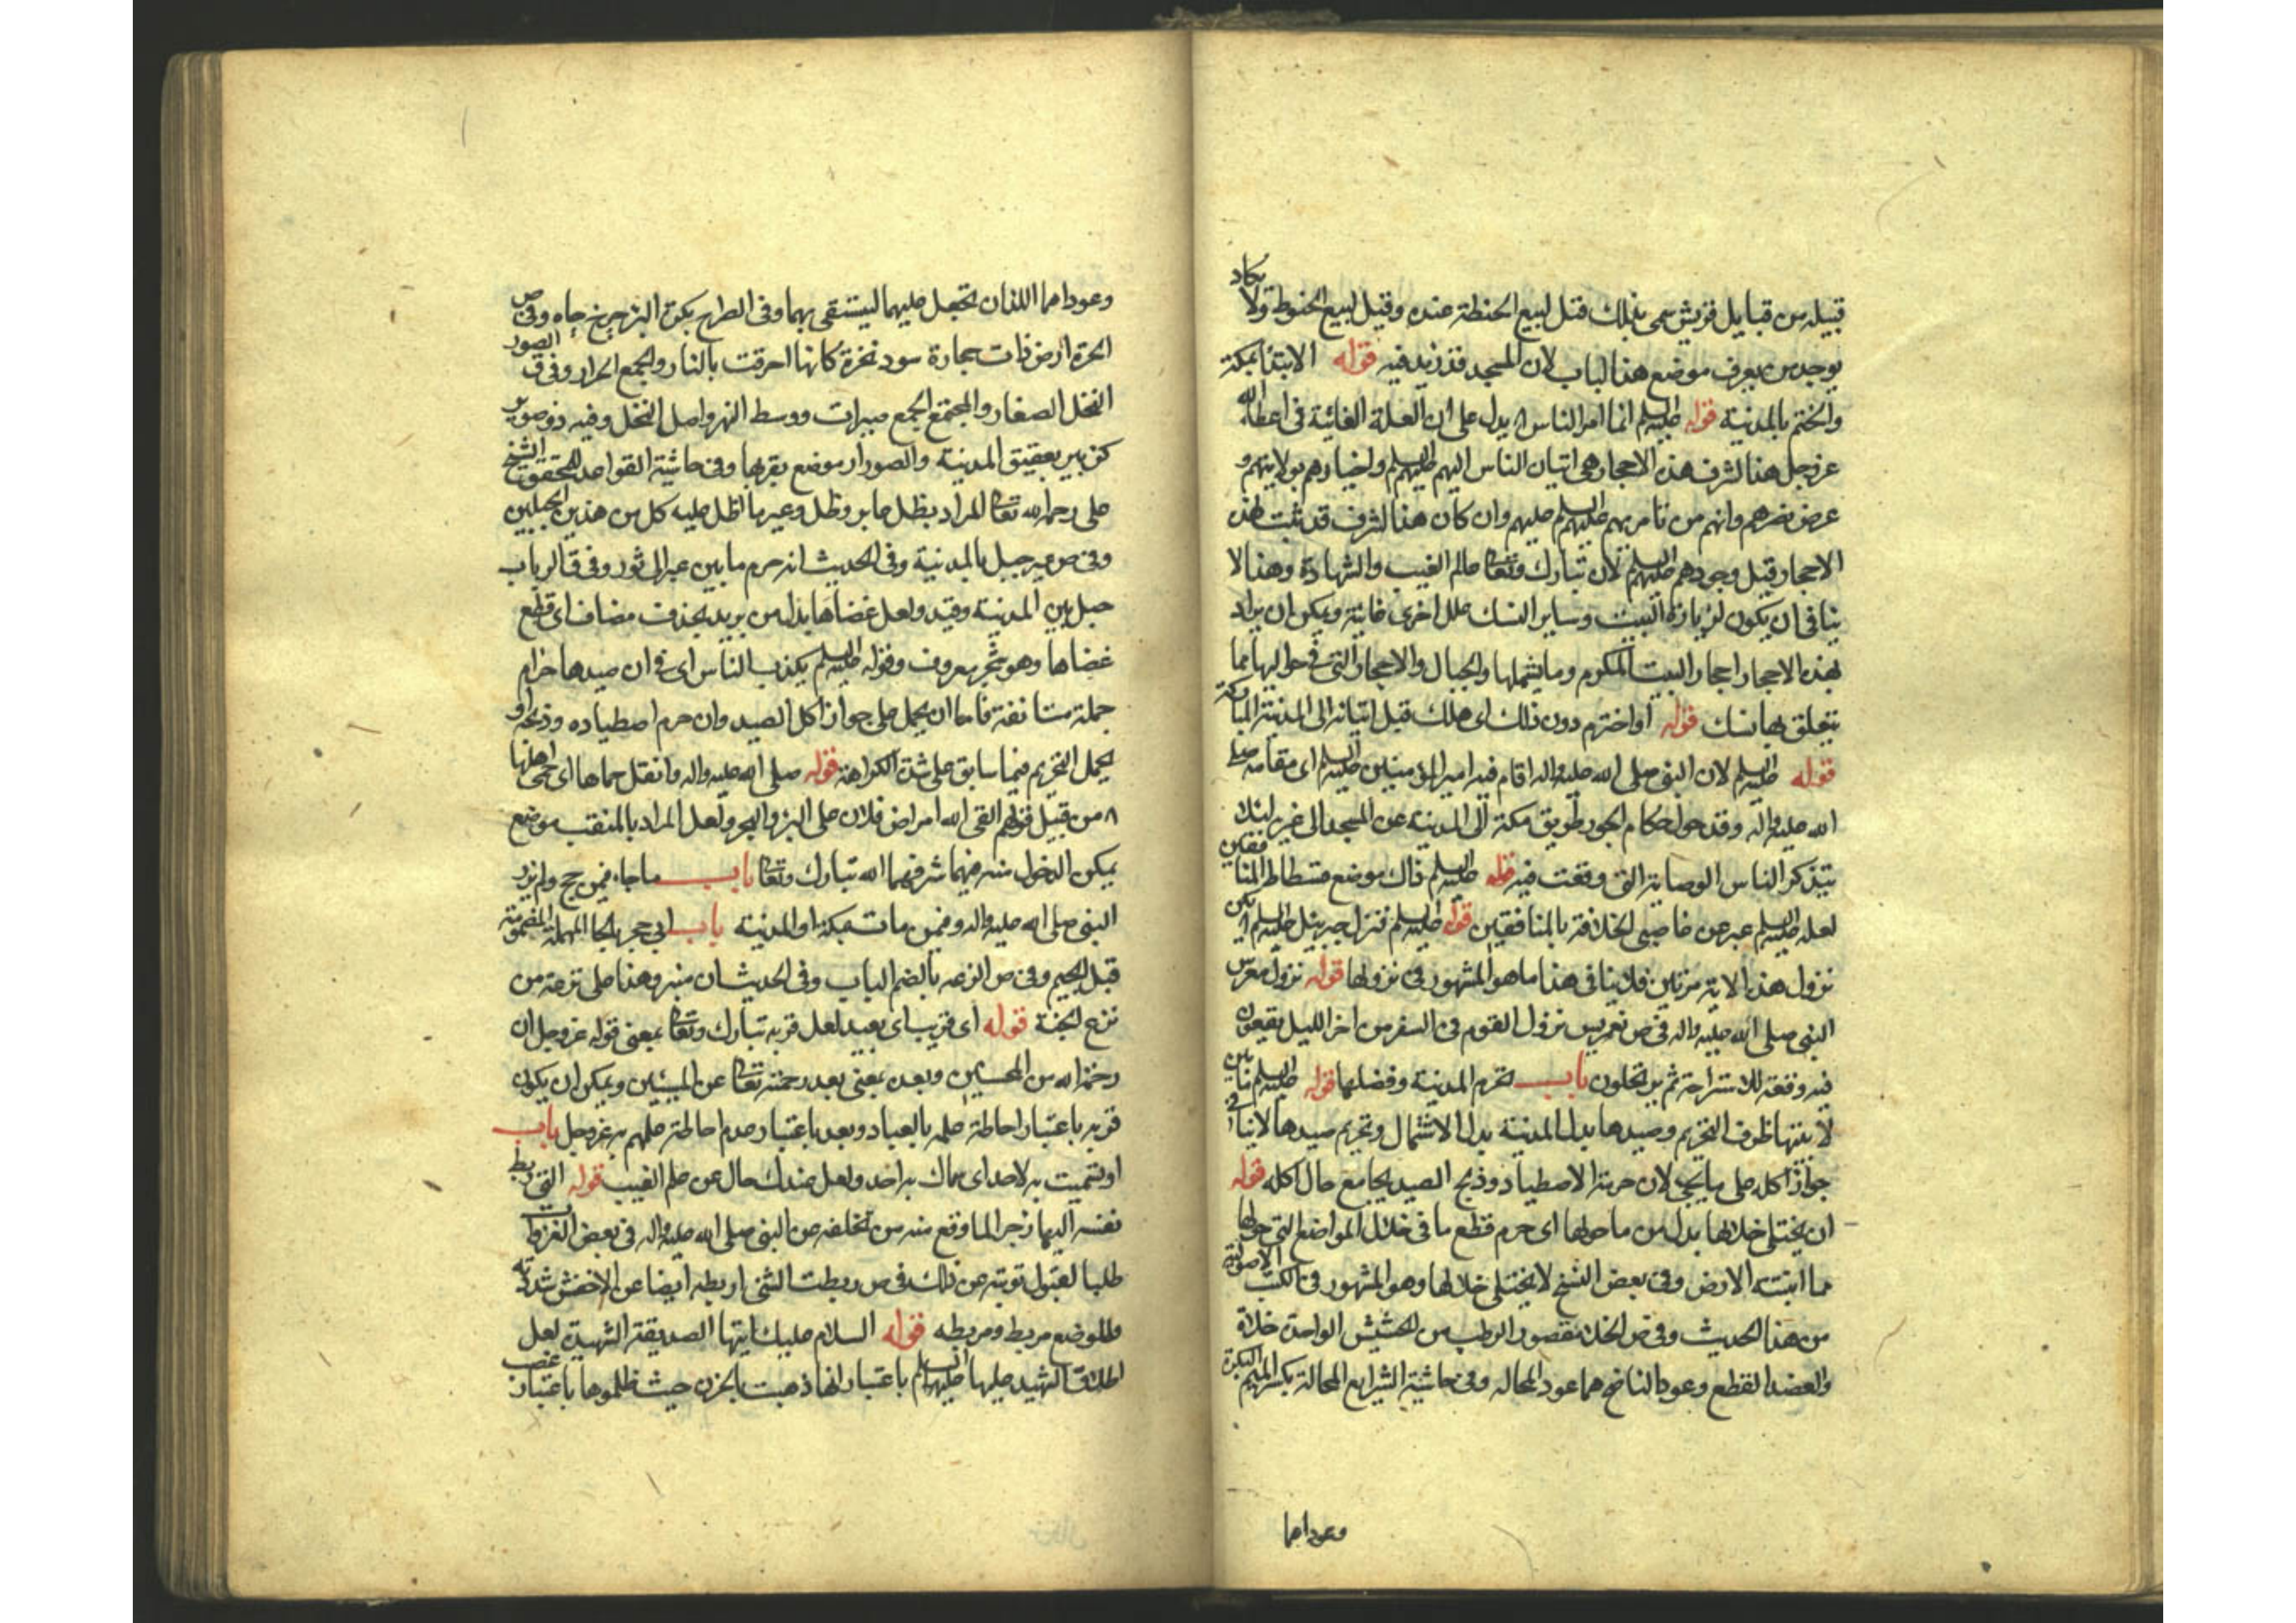 قبيله من قبايل قريش سمى بذلك قيل لبيع الحنطة عنده وقيل لبيع الحنوط ولا يكاد
يوجد من يعرف موضع هذا الباب لان المسجد قد زيد فيه قوله الابتدا بمكة
والختم بالمدينة قوله عليه السلم انما امر الناس ا يدل على ان العلة الغائية فى اعطا الله
عز وجل هذا الشرف هذه الاحجار هى اتيان الناس اليهم عليهم السلم واخبارهم بولايتهم و
عرض نصرهم وانهم من تامر بهم عليهم السلم عليهم وان كان هذا الشرف قد ثبت لهذه
الاحجار قبل وجودهم عليهم السلم لان تبارك وتعالى عالم الغيب والشهادة وهذا لا
ينافى ان يكون لزيارة البيت وساير النسك علل اخرى غائية ويمكن ان يراد
بهذه الاحجار احجار البيت المكرم وما يشملها والجبال والاحجار التى فى حواليها مما
يتعلق بها نسك قوله أو اخترم دون ذلك اى هلك قبل اتيانه الى المدينة المباركة
قوله عليه السلم لان النبى صلى الله عليه واله اقام فيه امير المؤمنين عليه السلم اى مقامه صلى
الله عليه واله وقد حول حكام الجور طريق مكة الى المدينة عن المسجد الى غيره لئلا
يتذكر الناس الوصاية التى وقعت فيه قوله عليه السلم ذاك موضع فسطاط المنافقين
لعله عليه السلم عبر عن غاصبى الخلافة بالمنافقين قوله عليه السلم فنزل جبرئيل عليه السلم
نزول هذه الاية مرتين فلا ينافى هذا ما هو المشهور فى نزولها قوله نزول معرس
النبى صلى الله عليه واله فى ص تعريس نزول القوم فى السفر من اخر الليل يقعون
فيه وقعة للاستراحة ثم يرتحلون باب تحرم المدينة وفضلها قوله عليه السلم ما بين
لابتيها ظرف التحريم وصيدها بدل المدينة بدل الاشتمال وتحريم صيدها لا ينافى
جواز اكله على ما يجى لان حرمة الاصطياد وذبح الصيد يجامع حال اكله قوله
ان يختلى خلالها بدل من ما حولها اى حرم قطع ما فى خلال المواضع التى حولها
مما انبته الارض وفى بعض النسخ لا يختلى خلالها وهو المشهور فى الكتب الاصولية
من هذا الحديث وفى ص الخلا مقصور الرطب من الحشيش الواحدة خلاة
والعضد القطع وعودا الناضح هما عود المحاله وفى حاشية الشرايع المحالة بكسر الميم البكرة
وعوداهما
وعوداهما اللذان تجعل عليهما ليستقى بهما وفى الطرح بكرة البئر چرخ چاه وفى ص
الحرة ارض ذات حجارة سود نخرة كانها احرقت بالنار والجمع الحرار وفى ق الصور
النخل الصغار والمجتمع الجمع صيرات ووسط النهر واصل النخل وفيه ذو صوير
كزبير بعقيق المدينة والصوران موضع بقربها وفى حاشية القواعد للمحقق الشيخ
على رحمه الله تعالى المراد بظل عاير وظل وعير ما اظل عليه كل من هذين الجبلين
وفى ص عير جبل بالمدينة وفى الحديث انه حرم ما بين عير الى ثور وفى ق الرباب
جبل بين المدينة وفيد ولعل غضاها بدل من بريد بحذف مضاف اى قطع
غضاها وهو شجر معروف وقوله عليه السلم يكذب الناس اى فى ان صيدها حرام
جملة مستانفة فاما ان يحمل على جواز اكل الصيد وان حرم اصطياده وذبحه او
يحمل التحريم فيما سابق على شدة الكراهة قوله صلى الله عليه واله وانقل حماها اى حمى اهلها
من قبيل قولهم القى الله امراض فلان على البر والبحر ولعل المراد بالمنقب موضع
يمكن الدخول منه فيهما شرفهما الله تبارك وتعالى باب ما جاء فيمن حج ولم يزر
النبى صلى الله عليه واله وفيمن مات بمكة او المدينة باب ابى حجر بالحا المهملة المضمومة
قبل الجيم وفى ص الترعه بالضم الباب وفى الحديث ان منبرى هذا على ترعة من
ترع الجنة قوله أى قريب اى بعيد لعل قربه تبارك وتعالى بمعنى قوله عز وجل ان
رحمة الله من المحسنين وبعده بمعنى بعد رحمته تعالى عن المسيئين ويمكن ان يكون
قربه باعتبار احاطة علمه بالعباد وبعده باعتبار عدم احاطة علمهم به عز وجل باب
او تسميت به لاحد اى سماك به احد ولعل عندك حال عن علم الغيب قوله التى ربط
نفسه اليها زجرا لما وقع منه من تخلفه عن النبى صلى الله عليه واله فى بعض الغزوات
طلبا لقبول توبته عن ذلك فى ص ربطت الشئ اربطه ايضا عن الاخفش شددته
والموضع مربط ومربطه قوله السلام عليك ايتها الصديقة الشهيدة لعل
اطلاق الشهيد عليها عليها السلم باعتبار انها ذهبت بالحزن حيث ظلموها باعتبار غصب